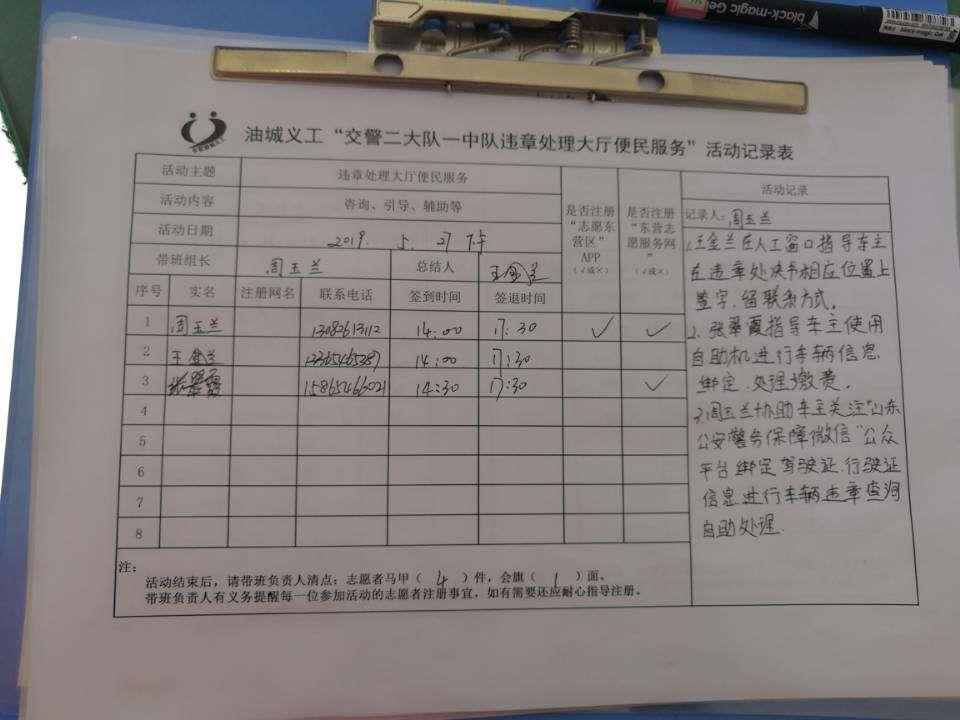 black-magic Gel
油城义工“交警二大队一中队违章处理大厅便民服务”活动记录表
活动主题 违章处理大厅便民服务
活动内容 咨询、引导、辅助等
活动日期 2019. 5. 27 下午
带班组长 周玉兰 总结人 王金兰
是否注册“志愿东营区”APP（√或×）
是否注册“东营志愿服务网”（√或×）
序号 实名 注册网名 联系电话 签到时间 签退时间
1 周玉兰 13082613112 14:00 17:30 √ √
2 王金兰 14:00 17:30
3 张翠霞 15865466021 14:30 17:30 √
4
5
6
7
8
注：
活动结束后，请带班负责人清点：志愿者马甲（ 4 ）件，会旗（ 1 ）面。
带班负责人有义务提醒每一位参加活动的志愿者注册事宜，如有需要还应耐心指导注册。
活动记录
记录人：周玉兰
1.王金兰在人工窗口指导车主
在违章处决书相应位置上
签字，留联系方式。
2、张翠霞指导车主使用
自助机进行车辆信息
绑定、处理缴费。
3.周玉兰协助车主关注“山东
公安警务保障微信”公众
平台绑定驾驶证、行驶证
信息进行车辆违章查询
自助处理.